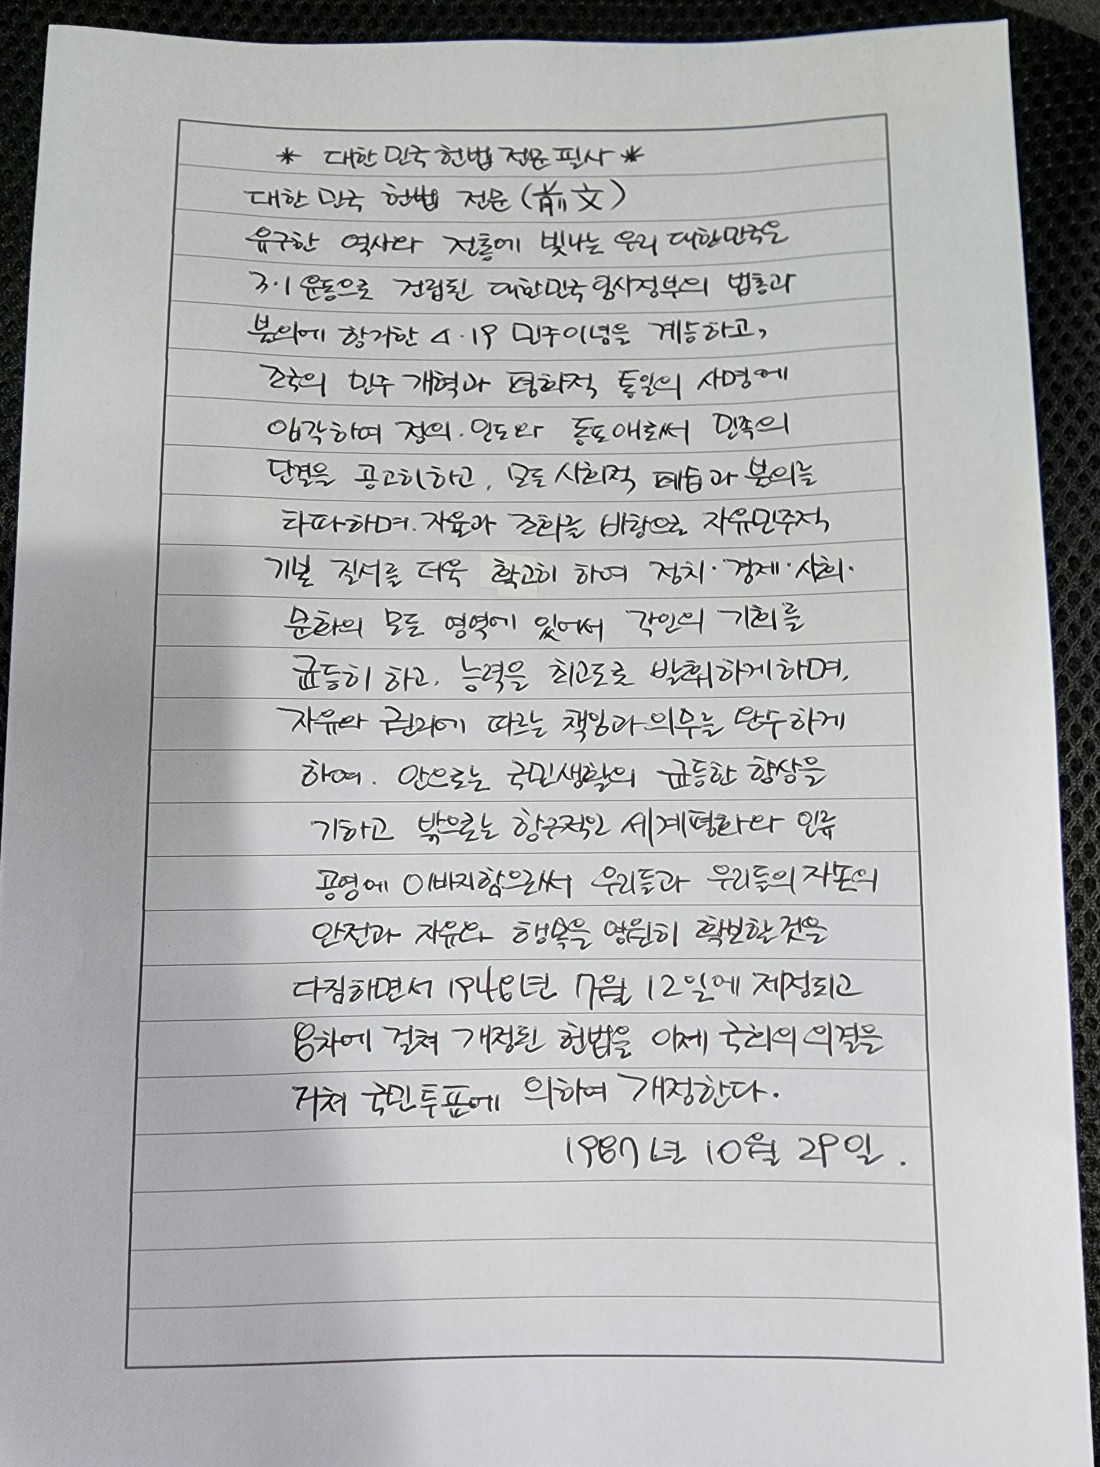 * 대한민국헌법 전문필사 *
대한민국 헌법 전문(前文)
유구한 역사와 전통에 빛나는 우리 대한민국은
3·1운동으로 건립된 대한민국임시정부의 법통과
불의에 항거한 4·19 민주이념을 계승하고,
조국의 민주개혁과 평화적 통일의 사명에
입각하여 정의·인도와 동포애로써 민족의
단결을 공고히하고, 모든 사회적 폐습과 불의를
타파하며. 자율과 조화를 바탕으로 자유민주적
기본 질서를 더욱 확고히 하여 정치·경제·사회·
문화의 모든 영역에 있어서 각인의 기회를
균등히 하고, 능력을 최고도로 발휘하게하며,
자유와 권리에 따르는 책임과 의무를 완수하게
하여. 안으로는 국민생활의 균등한 향상을
기하고 밖으로는 항구적인 세계평화와 인류
공영에 이바지함으로써 우리들과 우리들의 자손의
안전과 자유와 행복을 영원히 확보할것을
다짐하면서 1948년 7월 12일에 제정되고
8차에 걸쳐 개정된 헌법을 이제 국회의 의결을
거쳐 국민투표에 의하여 개정한다.
1987년 10월 29일.